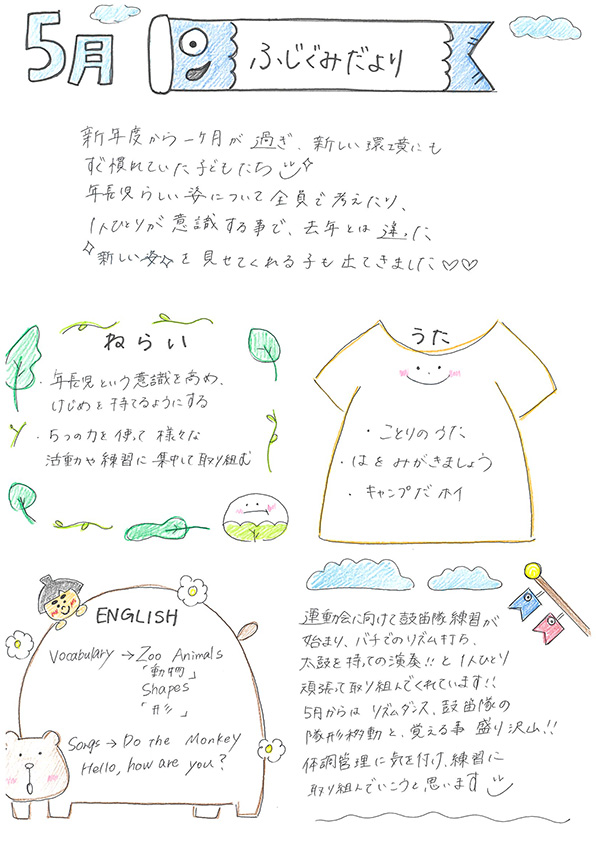 5月
ふじぐみだより
新年度から一ヶ月が過ぎ、新しい環境にも
すぐ慣れていた子どもたち
年長児らしい姿について全員で考えたり、
1人ひとりが意識する事で、去年とは違った
新しい姿を見せてくれる子も出てきました♡♡
ねらい
・年長児という意識を高め、
けじめを持てるようにする
・5つの力を使って様々な
活動や練習に集中して取り組む
うた
・ことりのうた
・はをみがきましょう
・キャンプだホイ
ENGLISH
Vocabulary → Zoo Animals
「動物」
Shapes
「形」
Songs → Do the Monkey
Hello, how are you?
運動会に向けて鼓笛隊練習が
始まり、バチでのリズム打ち、
太鼓を持っての演奏!!と1人ひとり
頑張って取り組んでくれています!!
5月からはリズムダンス、鼓笛隊の
隊形移動と、覚える事盛り沢山!!
体調管理に気を付け、練習に
取り組んでいこうと思います